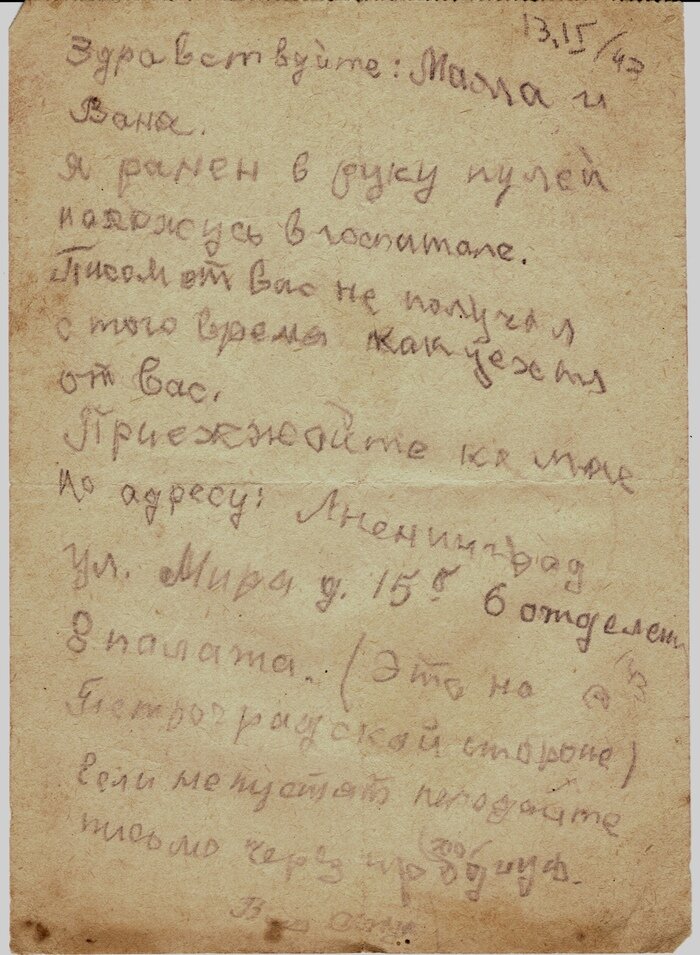 13.II/43
Здравствуйте: Мама и
Вана.
Я ранен в руку пулей
нахожусь в госпитале.
Писем от Вас не получал
с того время как уехал
от Вас.
Приежжойте ко мне
по адресу: Лненинград
ул. Мира д. 15 б 6 отделен
8 палата. (Это на
Петроградской стороне)
Если не пустят передайте
письмо через